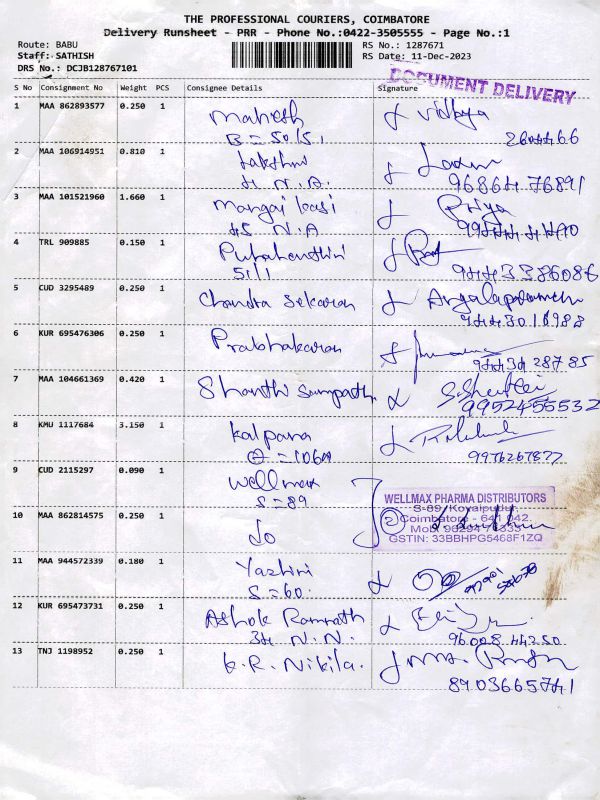 THE PROFESSIONAL COURIERS, COIMBATORE
Delivery Runsheet - PRR - Phone No.:0422-3505555 - Page No.:1
Route: BABU
RS No.: 1287671
Staff: SATHISH
RS Date: 11-Dec-2023
DRS No.: DCJB128767101
DOCUMENT DELIVERY
S No Consignment No Weight PCS Consignee Details Signature
1 MAA 862893577 0.250 1 Mahesh Vidhya
B=50/51 2604466
2 MAA 106914951 0.810 1 Lakshmi
H.N.A. 9686476891
3 MAA 101521960 1.660 1 Mangai kasi Priya
HS N.A
4 TRL 909885 0.150 1
51/1 9443386086
5 CUD 3295489 0.250 1 Chandra Sekaran
6 KUR 695476306 0.250 1 Prabhakaran
7 MAA 104661369 0.420 1 Shanthi Sampath
9952455532
8 KMU 1117684 3.150 1 kalpana
9976267877
9 CUD 2115297 0.090 1 Wellmax
S=89
WELLMAX PHARMA DISTRIBUTORS
S-89, Kovaipudur,
10 MAA 862814575 0.250 1 do
Coimbatore - 641 042.
GSTIN: 33BBHPG5468F1ZQ
11 MAA 944572339 0.180 1 Yazhini
S=60.
12 KUR 695473731 0.250 1 Ashok Ramnath
3H N.N. 96008 44250
13 TNJ 1198952 0.250 1 K.R. Nikila.
8903665741